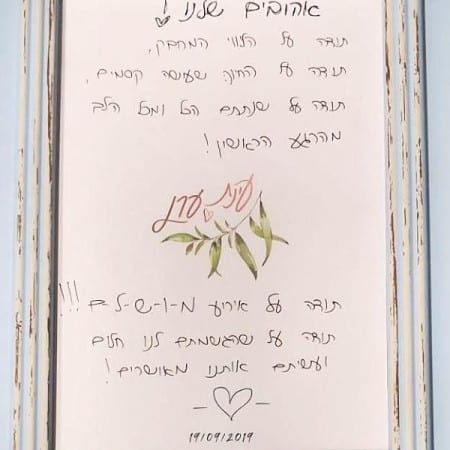 אהובים שלנו!
תודה על הליווי המחבק,
תודה על החיוך שעושה קסמים,
תודה על שנתתם הכל ומכל הלב
מהרגע הראשון!
עינת ♡ ערן
תודה על אירוע מ-ו-ש-ל-ם!!!
תודה על שהגשמתם לנו חלום
ועשיתם אותנו מאושרים!
-♡-
19/09/2019